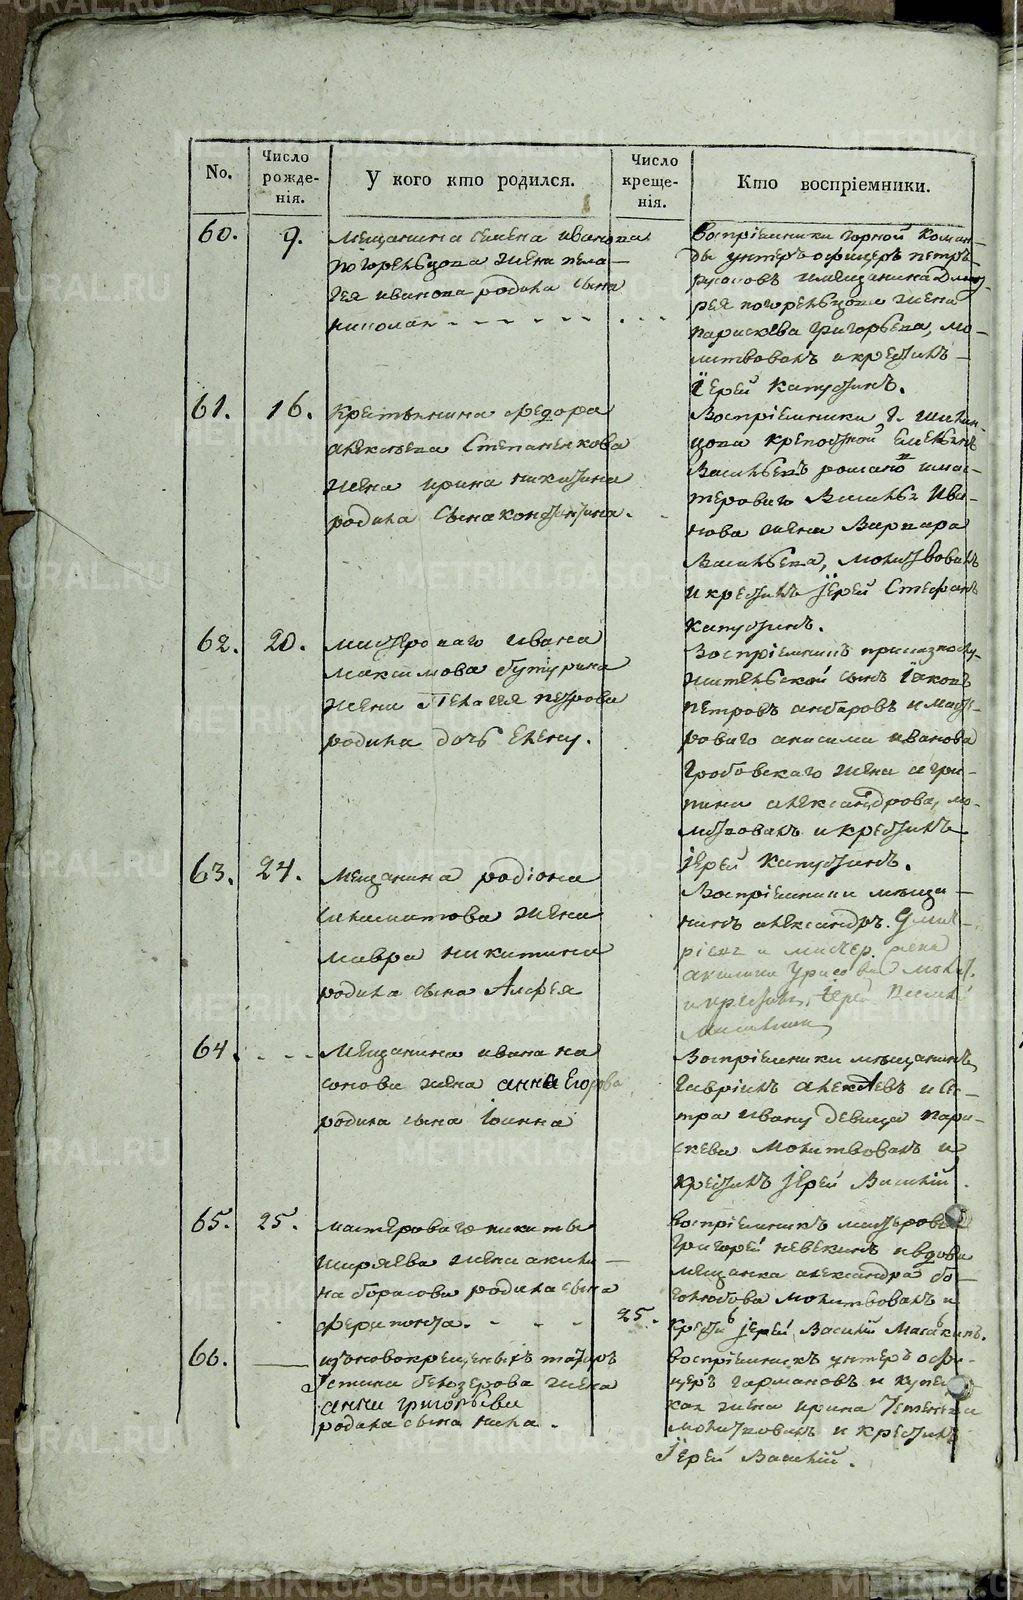 No.
Число рожде- нія.
У кого кто родился.
Число креще- нія.
Кто воспріемники.
60.
9.
Мещанина семена иванова
жена пела-
гея иванова родила сына
николая
Воспріемники горной коман-
ды унтеръ офицеръ петръ
имещанина
жена
парискева григорьева, мо-
литвовалъ икрестилъ
Іерей Капустинъ.
61.
16.
Крестьянина федора
алексѣева Степаненкова
жена ирина никитина
родила сына константина.
Воспріемники
крепостной
Васильевъ имас-
тероваго Василья Ива-
нова жена Варвара
Васильева, молитвовалъ
и крестилъ іерей Стефанъ
Капустинъ.
62.
20.
мастероваго ивана
максимова бутурина
жена Пелагея петрова
родила дочь елену.
Воспріемникъ
сынъ іяковъ
петровъ анбаровъ и масте-
роваго анисима иванова
гробовскаго жена агри-
пина александрова, мо-
литвовалъ и крестилъ
іерей Капустинъ.
63.
24.
Мещанина родіона
жена
мавра никитина
родила сына Алфея
Воспріемники мѣща-
нинъ александръ
и мастер. жена
акилина молит.
и крестилъ іерей
64.
Мещанина ивана
жена анна Егорова
родила сына іоанна
Воспріемники мѣщанинъ
гаврилъ алексѣевъ и
ивану девица пара-
скева молитвовалъ и
крестилъ іерей Василій.
65.
25.
мастероваго никиты
ширяева жена акили-
на борисова родила сына
ферапонта.
25.
воспріемникъ мастеровой
григорей невекинъ ивдова
мещанка александра бо-
голюбова молитвовалъ и
крести іерей Василій
66.
изновокрещеныхъ татаръ
Устина белозерова жена
анна григорьева
родила сына нила.
воспріемникъ унтеръ офи-
церъ гармановъ и купец-
кая жена ирина
молитвовалъ и крестилъ
Іерей Василій.
METRIKI.GASO-URAL.RU